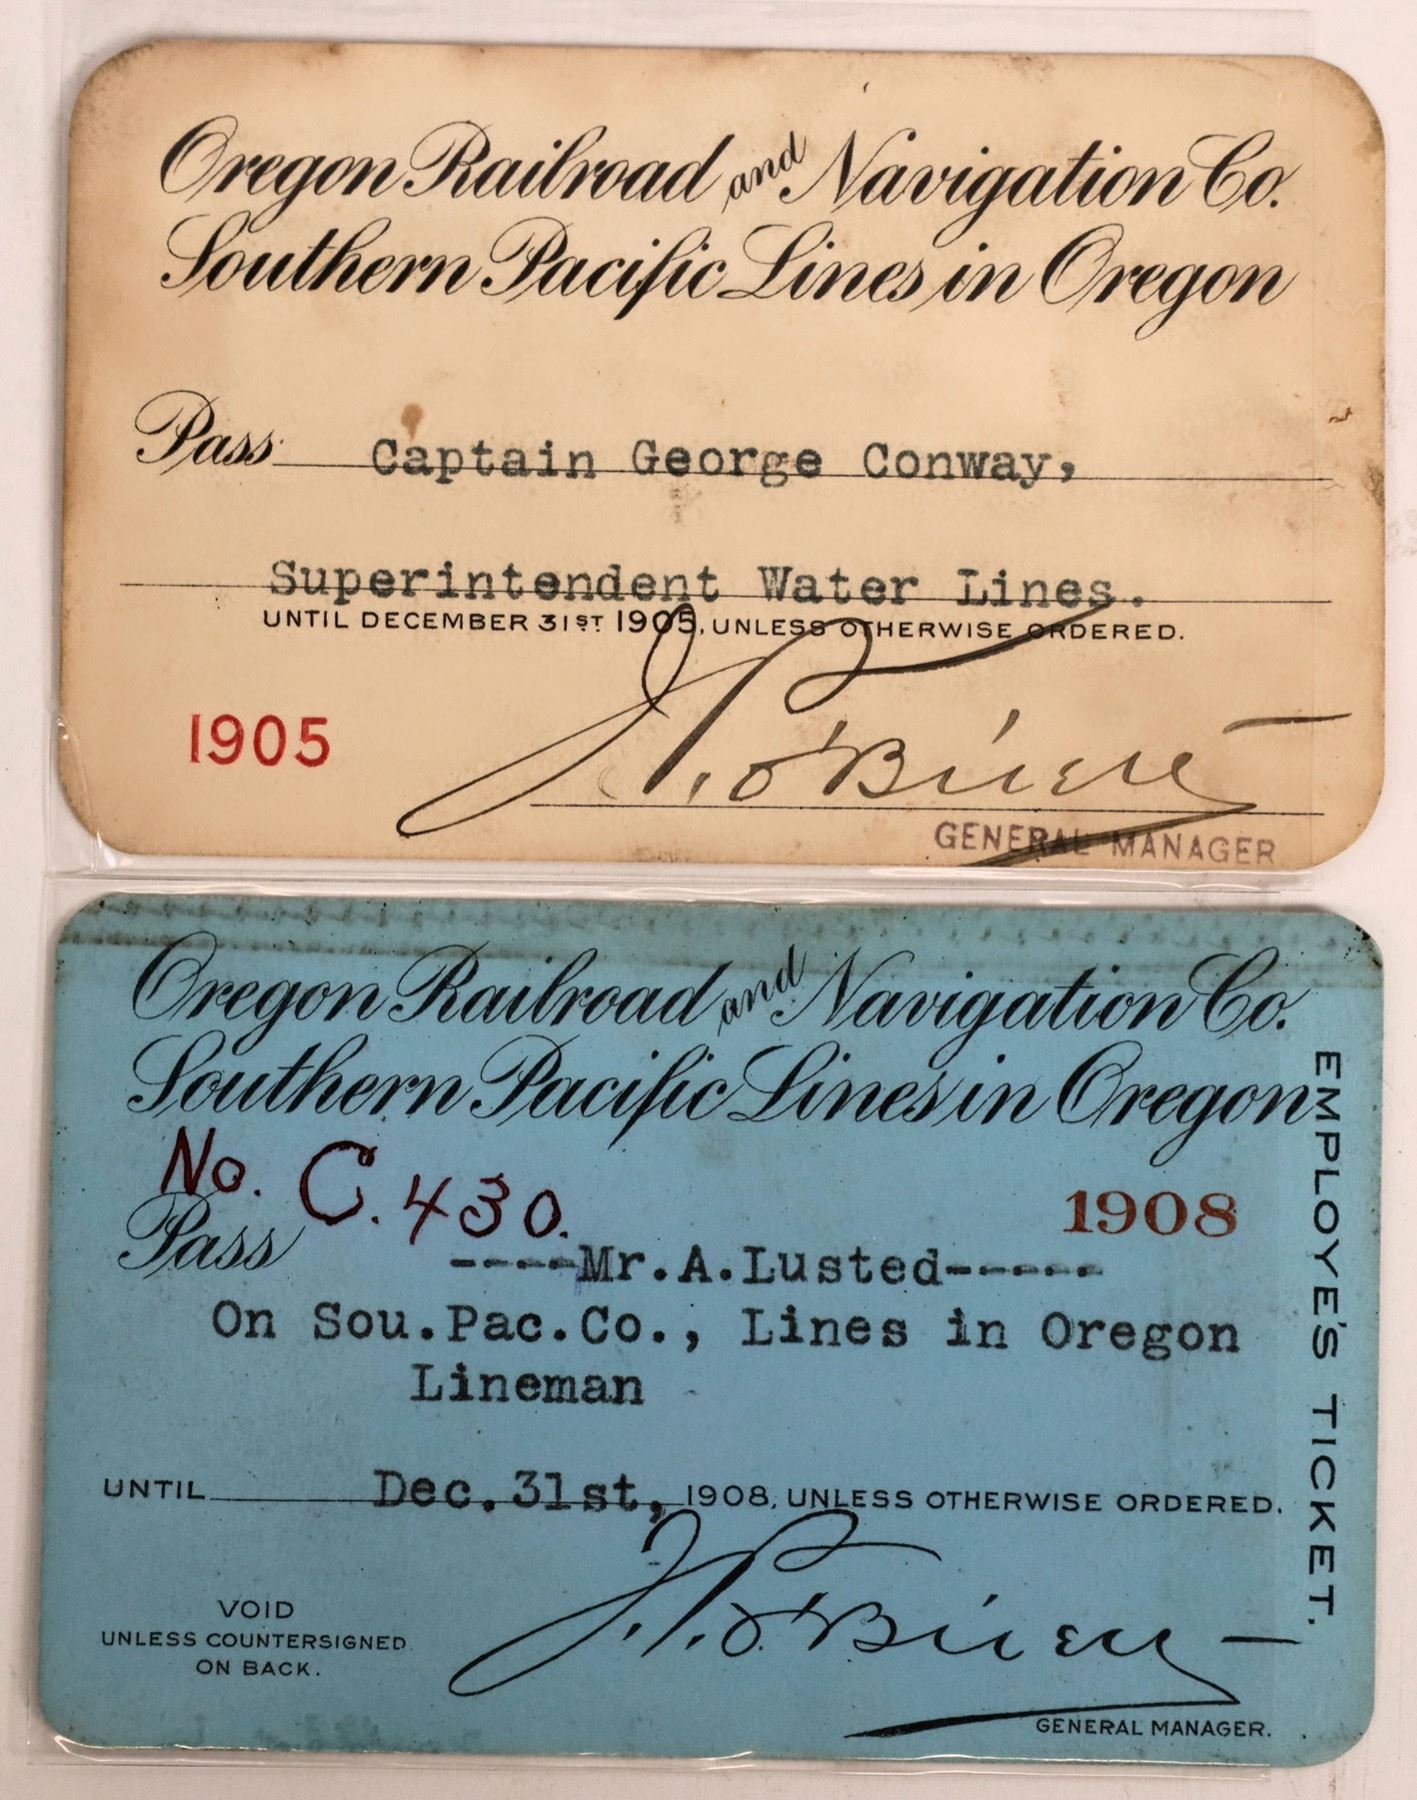 Oregon Railroad and Navigation Co.
Southern Pacific Lines in Oregon
Pass Captain George Conway,
Superintendent Water Lines.
UNTIL DECEMBER 31ST 1905, UNLESS OTHERWISE ORDERED.
1905
J. P. O'Brien
GENERAL MANAGER
Oregon Railroad and Navigation Co.
Southern Pacific Lines in Oregon
No. C. 430.
1908
Pass ----Mr.A.Lusted------
On Sou.Pac.Co., Lines in Oregon
Lineman
UNTIL Dec.31st, 1908, UNLESS OTHERWISE ORDERED.
J. P. O'Brien
VOID
UNLESS COUNTERSIGNED
ON BACK.
GENERAL MANAGER.
EMPLOYE'S TICKET.